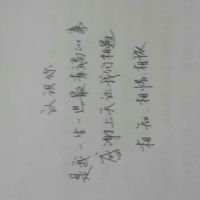 认识你
是我一生一世最幸福的事
感谢上天让我们相遇
相知、相惜相伴